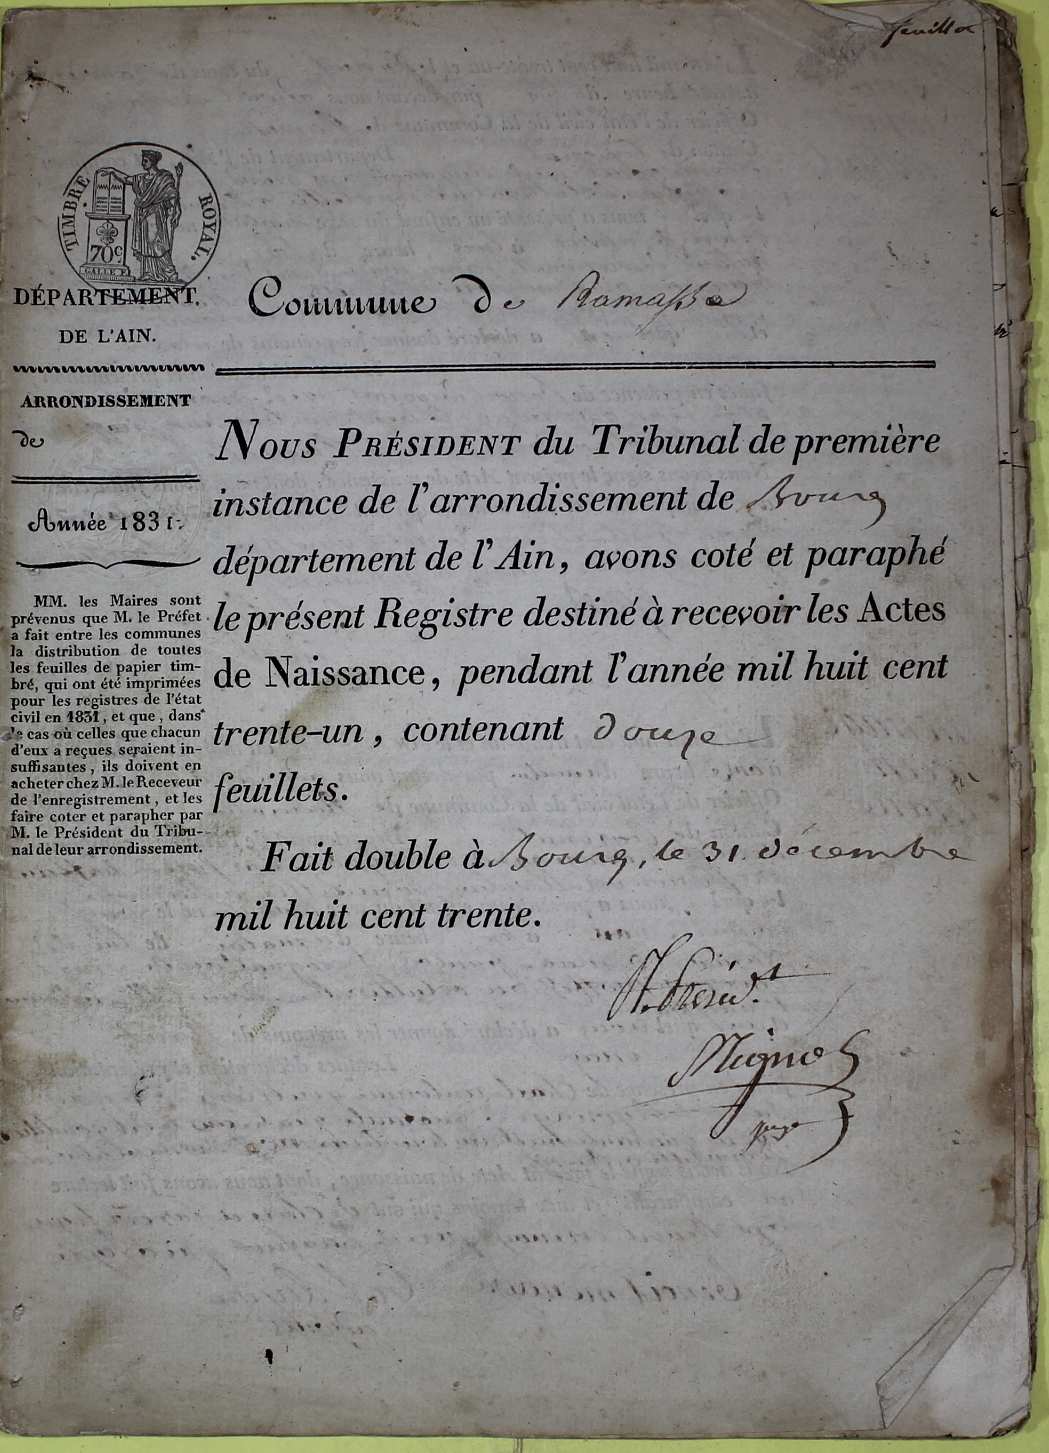 feuillet
TIMBRE ROYAL.
70c
DÉPARTEMENT.
DE L'AIN.
Commune de Ramasse
ARRONDISSEMENT
de
Année 1831.
MM. les Maires sont
prévenus que M. le Préfet
a fait entre les communes
la distribution de toutes
les feuilles de papier tim-
bré, qui ont été imprimées
pour les registres de l'état
civil en 1831, et que, dans
le cas où celles que chacun
d'eux a reçues seraient in-
suffisantes, ils doivent en
acheter chez M. le Receveur
de l'enregistrement, et les
faire coter et parapher par
M. le Président du Tribu-
nal de leur arrondissement.
NOUS PRÉSIDENT du Tribunal de première
instance de l'arrondissement de Bourg
département de l'Ain, avons coté et paraphé
le présent Registre destiné à recevoir les Actes
de Naissance, pendant l'année mil huit cent
trente-un, contenant douze
feuillets.
Fait double à Bourg, le 31. décembre
mil huit cent trente.
juge